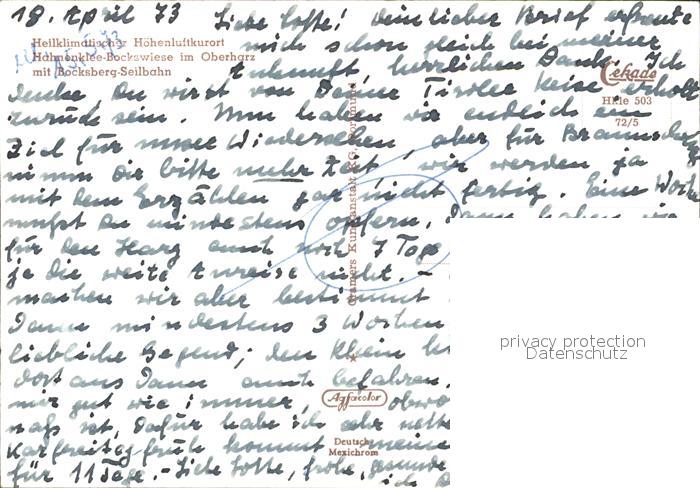 18. April 73 Liebe Lotte! Dein lieber Brief erfreute
Heilklimatischer Höhenluftkurort
Hahnenklee-Bockswiese im Oberharz
mit Bocksberg-Seilbahn
mich schon gleich bei meiner
Ankunft, herzlichen Dank. Ich
Cekade
HHle 503
72/5
denke, Du wirst von Deiner Tiroler Reise erholt
zurück sein. Nun haben wir endlich ein
Ziel für unser Wiedersehen, aber für Braunschw
nimm Dir bitte mehr Zeit, wir werden ja
mit dem Erzählen gar nicht fertig. Eine Woche
mußt Du mindestens opfern, dann haben wir
für den Harz auch noch 7 Tage
je die weite Anreise nicht. -
machen wir aber bestimmt
Dann mindestens 3 Wochen
liebliche Gegend; den Rhein
dort aus dann auch befahren.
mir gut wie immer, obwo
naß ist, dafür habe ich sehr nette
Karfreitag früh kommt meine
für 11 Tage. - Liebe Lotte, frohe, gesunde
ich
Cramers Kunstanstalt KG, Dortmund
Agfacolor
Deutsche
Mexichrom
privacy protection
Datenschutz